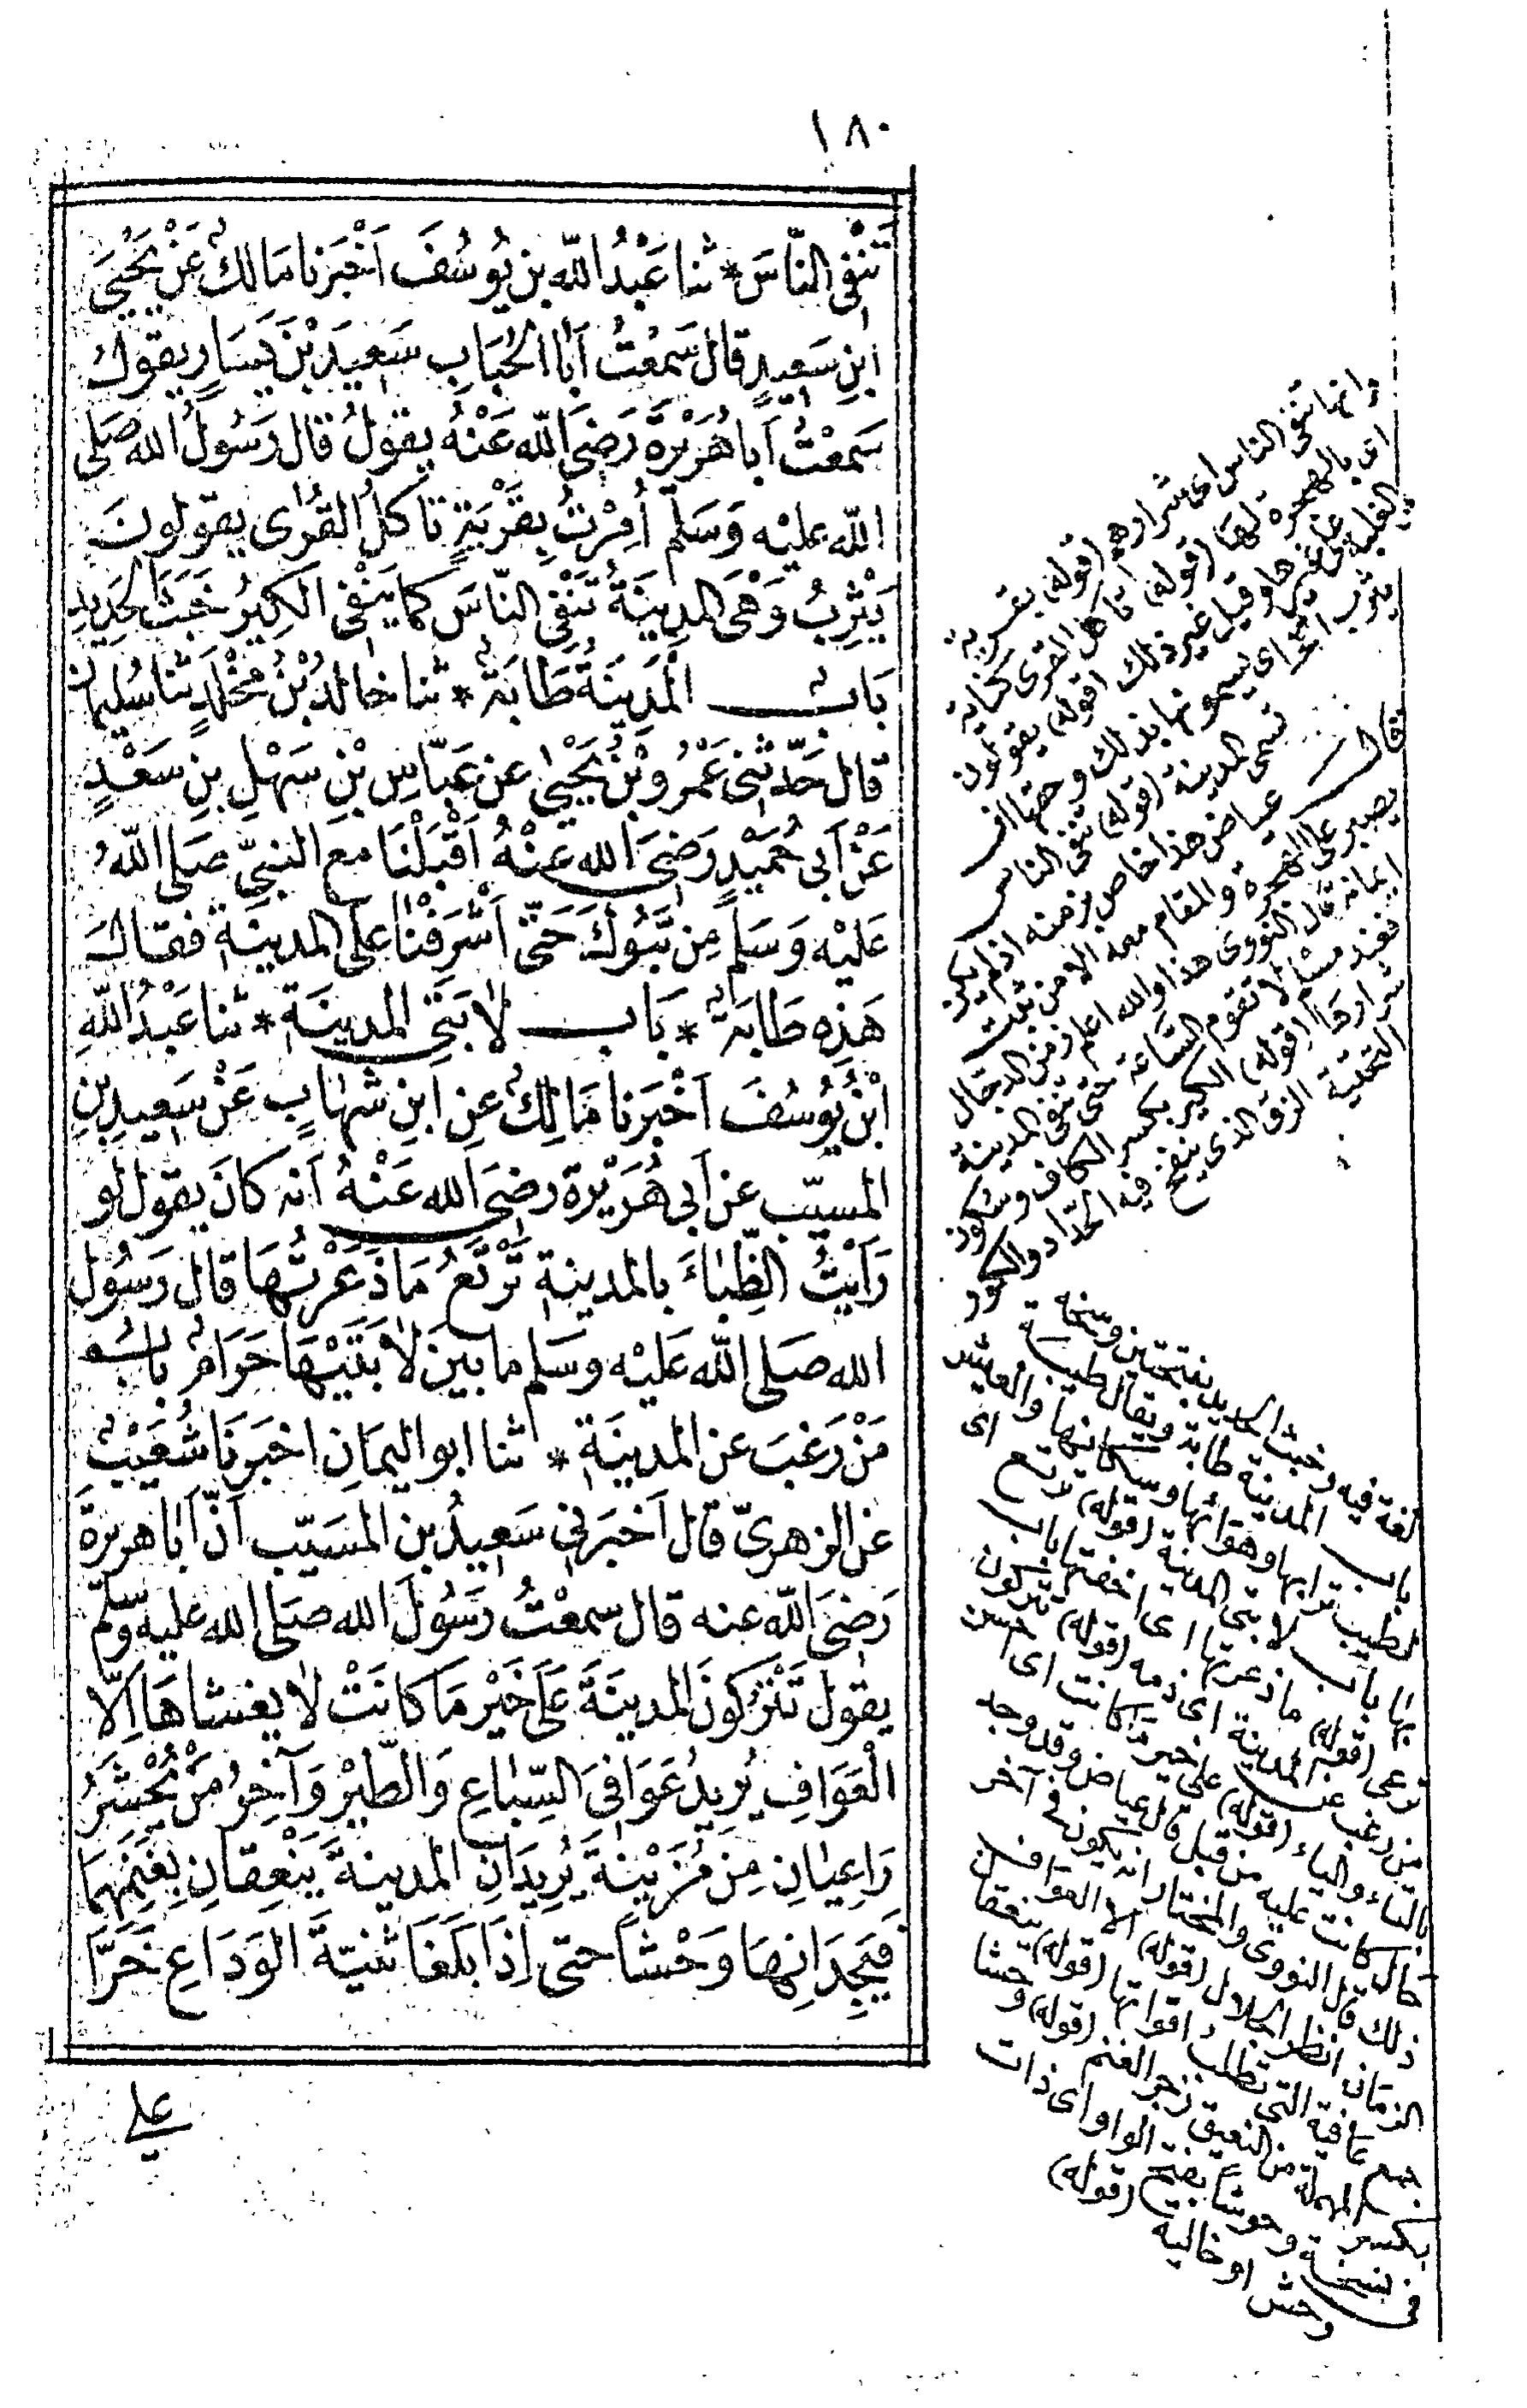 ١٨٠
تَنْفِى النَّاسَ * ثنا عَبْدُ اللّهِ بن يُوسُفَ اَخْبَرَنا مَالكٌ عَنْ يَحْيَى
ابنِ سَعِيدٍ قال سَمِعْتُ اَبا الحُبَابِ سَعِيدَ بْنَ يَسَارٍ يقولُ
سَمِعْتُ اَبا هُرَيْرَةَ رَضِىَ اللّه عَنْهُ يقولُ قال رَسُولُ الله صَلى
اللّه عليْه وَسَلم اُمِرْتُ بِقَرْيَةٍ تَاكلُ القُرٰى يقولونَ
يَثْرِبُ وَهْىَ المدِينَةُ تَنْفِى النّاسَ كما يَنْفِى الكِيرُ خَبَثَ الحَدِيدِ
بَابٌ المَدِينَةُ طَابَةٌ * ثنا خالدُ بْنُ مَخْلَدٍ ثنا سُليمان
قال حَدّثنِى عَمْرُو بْنُ يَحْيٰى عن عَبّاسِ بْنِ سَهْلِ بنِ سَعْدٍ
عَنْ اَبى حُمَيْدٍ رَضِىَ الله عَنْهُ اَقْبَلْنَا مع النبىِّ صَلى اللّهُ
عَليْه وَسَلم مِن تَبُوكَ حَتّى اَشْرَفْنَا عَلَى المدينَةِ فقال
هَذِهِ طَابَةٌ * بَاب لاَبَتَىِ المدِينَةِ * ثنا عَبْدُ اللّهِ
ابْنُ يُوسُفَ اَخْبَرَنا مَالِكٌ عنِ ابنِ شهَابٍ عَنْ سَعِيدِ بْنِ
المسيّب عن اَبى هُرَيْرَةَ رضىَ الله عَنْهُ اَنه كانَ يقول لو
رَاَيْتُ الظِّبَاءَ بالمدينةِ تَرْتَعُ مَا ذَعَرْتُهَا قال رَسُول
الله صَلى اللّه عَليْه وسَلم ما بينَ لاَبَتَيْهَا حَرَامٌ بابُ
مَنْ رَغبَ عن المدينَةِ * ثنا ابو اليمَانِ اخبَرنَا شُعَيْبٌ
عن الزهرىّ قال اَخبَرَنى سَعِيدُ بن المسَيّب اَنّ اَبا هريرةَ
رَضِىَ اللّه عنه قال سمِعْتُ رَسُولَ الله صَلى الله عليه وسلم
يقول تَتْرُكونَ المدينَةَ عَلَى خَيْرِ مَا كانَتْ لا يغشاهَا اِلّا
الْعَوَافِ يُرِيدُ عَوَافِىَ السِّبَاعِ وَالطّيْرِ وَآخِرُ مَنْ يُحْشَرُ
رَاعِيَانِ مِنْ مُزَيْنةَ يُرِيدَانِ المدينةَ يَنْعِقَانِ بِغَنَمِهِمَا
فَيَجِدَانِهَا وَحْشاً حتى اِذَا بَلَغَا ثَنيّةَ الوَدَاعِ خَرَّا
على
وانما تنفى الناس اى شرارهم (قوله) بقرية
اى بالهجرة لها (قوله) تاكل القرى كناية
عن غيرها وقيل غير ذلك (قوله) يقولون
يثرب اى يسمونها بذلك
تسمى المدينة (قوله) تنفى الناس
قال عياض هذا خاص بزمنه اذ لم يكن
يصبر على الهجرة والمقام معه الا من ثبت
ايمانه قال النووى هذا والله اعلم زمن الدجال
فعند مسلم لا تقوم الساعة حتى تنفى المدينة
شرارها (قوله) الكير بكسر الكاف وسكون
التحتية الزق الذى ينفخ فيه الحداد والكور
لغة فيه وخبث الحديد بفتحتين وسخه
باب المدينة طابة ويقال طيبة
لطيب ترابها وهوائها وسكانها والعيش
بها باب لابتى المدينة (قوله) ترتع اى
ترعى (قوله) ما ذعرتها اى اخفتها باب
من رغب عن المدينة اى ذمه (قوله) تتركون
بالتاء والياء (قوله) على خير ما كانت اى احسن
حال كانت عليه من قبل قال عياض وقد وجد
ذلك قال النووى والمختار انه يكون فى آخر
الزمان انظر الكلام (قوله) الا العواف
جمع عافية التى تطلب اقواتها (قوله) ينعقان
بكسر المهملة من النعيق زجر الغنم (قوله) وحشا
فى نسخة وحوشا بفتح الواو اى ذات
وحش او خالية (قوله)